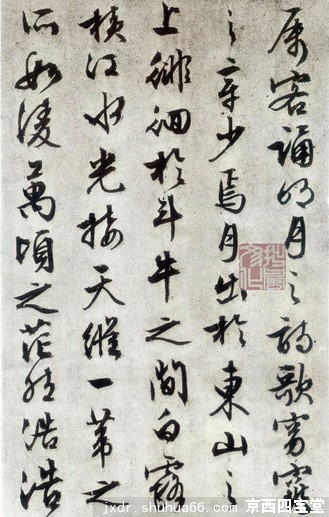 属客誦明月之詩歌窈窕
之章少焉月出於東山之
上徘徊於斗牛之間白露
橫江水光接天縱一葦之
所如淩萬頃之茫然浩浩
jxdr.shuhua66.com 京西四宝堂